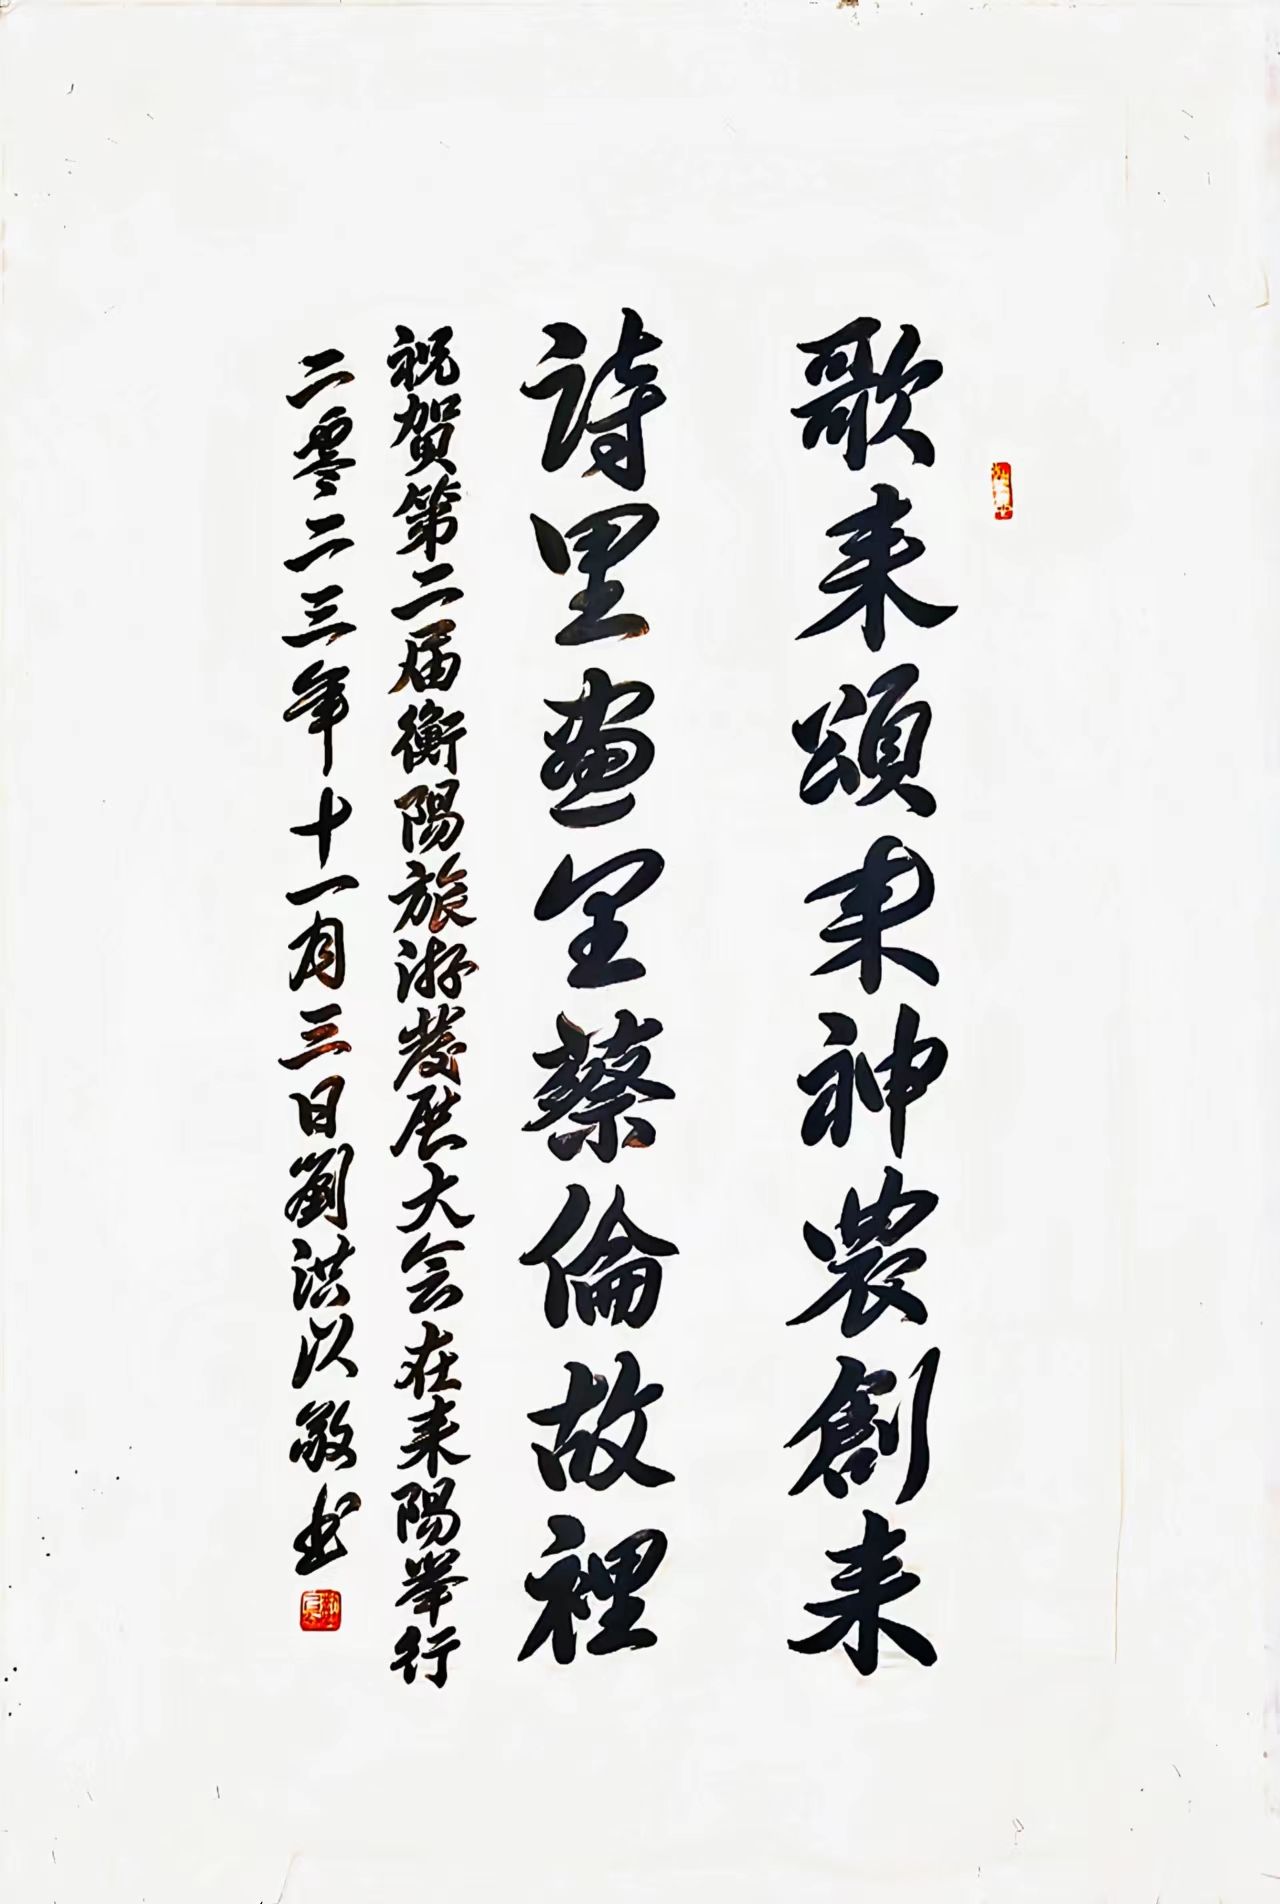 歌耒頌耒神農創耒
詩里畫里蔡倫故裡
祝賀第二届衡陽旅游發展大会在耒陽举行
二零二三年十一月三日劉洪以敬书